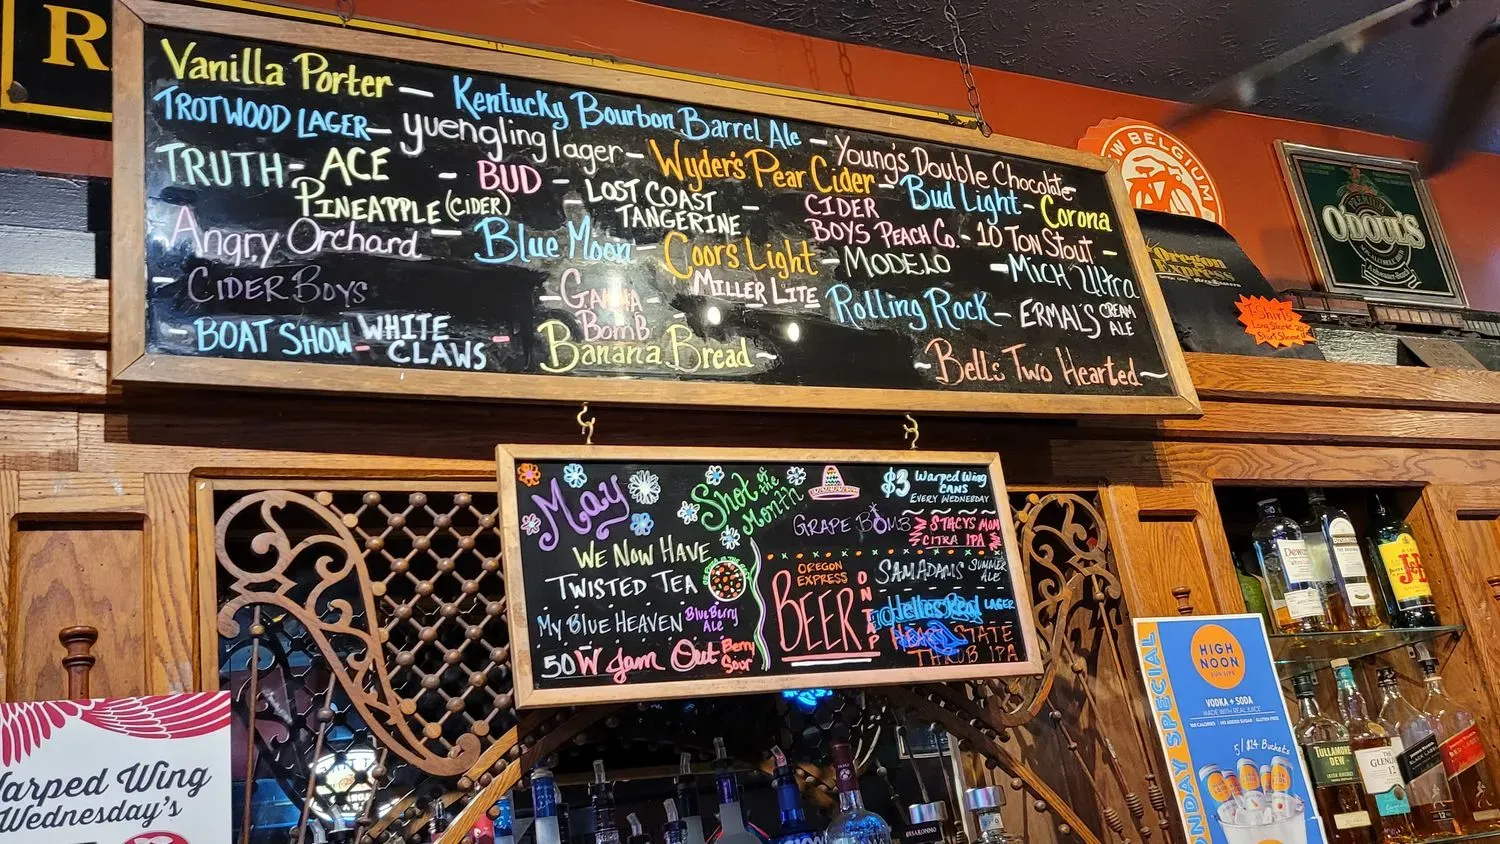 R
Vanilla Porter — Kentucky Bourbon Barrel Ale — Young's Double Chocolate
TROTWOOD LAGER — yuengling lager — Wyder's Pear Cider — Bud Light - Corona
TRUTH - ACE PINEAPPLE (CIDER) - BUD - LOST COAST TANGERINE - CIDER BOYS PEACH Co. - 10 TON STOUT -
Angry Orchard — Blue Moon - Coors Light - MODELO - MICH Ultra
- CIDER BOYS - GAMMA BOMB - MILLER LITE Rolling Rock - ERMAL'S CREAM ALE
- BOAT SHOW - WHITE CLAWS - Banana Bread - - Bells Two Hearted -
NEW BELGIUM
PREMIUM
O'DOUL'S
Oregon
Express
T-Shirts
Long Sleeve
Short Sleeve
May
WE NOW HAVE
TWISTED TEA
MY BLUE HEAVEN BlueBerry ALE
50W Jam Out Berry Sour
Shot of the Month
GRAPE BOMB
$3 Warped Wing CANS
EVERY WEDNESDAY
STACYS MOM
CITRA IPA
OREGON
EXPRESS
BEER
ONTAP
SAM ADAMS SUMMER ALE
LAGER
HEART STATE
THROB IPA
Warped Wing
Wednesday's
NDAY SPECIAL
HIGH
NOON
SUN SIPS
VODKA + SODA
MADE WITH REAL JUICE
5/$24 Buckets
Dewar's
BUSHMILLS
J&B
TULLAMORE
DEW
THE
GLENLIVET
12
DISARONNO